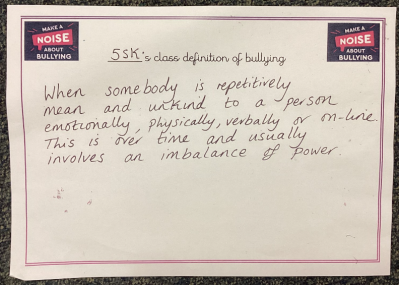 MAKE A
NOISE
ABOUT
BULLYING
5SK's class definition of bullying
MAKE A
NOISE
ABOUT
BULLYING
When somebody is repetitively
mean and unkind to a person
emotionally, physically, verbally or on-line.
This is over time and usually
involves an imbalance of power.